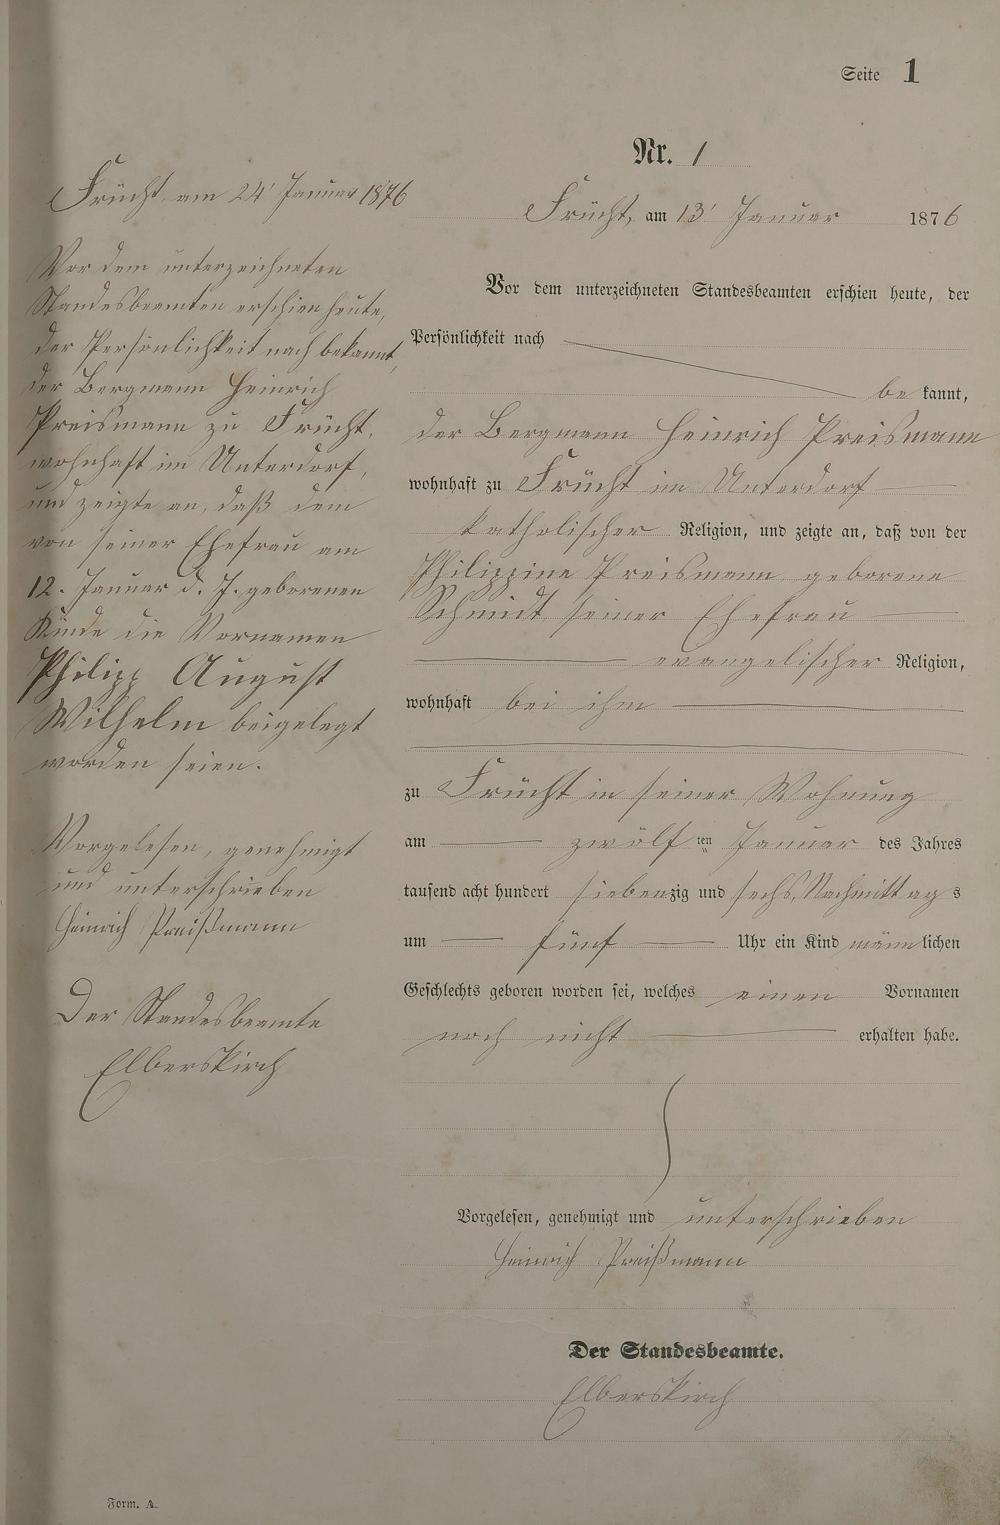 Seite 1
Nr. 1
Frücht, am 13' Januar 1876
Vor dem unterzeichneten Standesbeamten erschien heute, der
Persönlichkeit nach
be kannt,
der Bergmann Heinrich Preismann
wohnhaft zu Frücht im Unterdorf
katholischer Religion, und zeigte an, daß von der
Philippine Preismann geborene
Schmidt seiner Ehefrau
evangelischer Religion,
wohnhaft bei ihm
zu Frücht in seiner Wohnung
am zwölf ten Januar des Jahres
tausend acht hundert siebenzig und sechs, Nachmittags
um fünf Uhr ein Kind männlichen
Geschlechts geboren worden sei, welches einen Vornamen
noch nicht erhalten habe.
Vorgelesen, genehmigt und unterschrieben
Heinrich Preißmann
Der Standesbeamte.
Elberskirch
Frücht am 24' Januar 1876
Vor dem unterzeichneten
Standesbeamten erschien heute,
der Persönlichkeit nach bekannt,
der Bergmann Heinrich
Preismann zu Frücht,
wohnhaft im Unterdorf,
und zeigte an, daß dem
von seiner Ehefrau am
12. Januar d. J. geborenen
Kinde die Vornamen
Philipp August
Wilhelm beigelegt
worden seien.
Vorgelesen, genehmigt
und unterschrieben
Heinrich Preißmann
Der Standesbeamte
Elberskirch
Form. A.